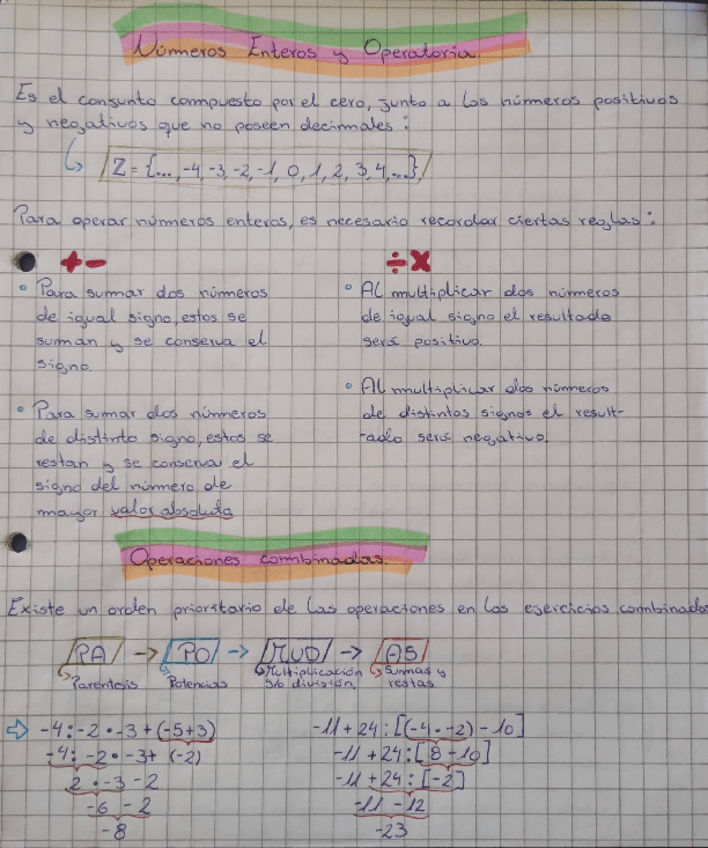 Números Enteros y Operatoria.
Es el conjunto compuesto por el cero, junto a los números positivos
y negativos que no poseen decimales:
Z = {..., -4, -3, -2, -1, 0, 1, 2, 3, 4, ...}
Para operar números enteros, es necesario recordar ciertas reglas:
+ -
• Para sumar dos números
de igual signo, estos se
suman y se conserva el
signo.
• Para sumar dos números
de distinto signo, estos se
restan y se conserva el
signo del número de
mayor valor absoluto
÷ x
• Al multiplicar dos números
de igual signo el resultado
será positivo.
• Al multiplicar dos números
de distintos signos el result-
-ado será negativo.
Operaciones combinadas.
Existe un orden prioritario de las operaciones en los ejercicios combinado
PA → PO → MUD → AS
Paréntesis
Potencias
Multiplicación
y/o división,
Sumas y
restas.
⇨ -4 : -2 • -3 + (-5+3)
-4 : -2 • -3 + (-2)
2 • -3 - 2
-6 - 2
-8
-11 + 24 : [(-4 • -2) - 10]
-11 + 24 : [8 - 10]
-11 + 24 : [-2]
-11 - 12
-23